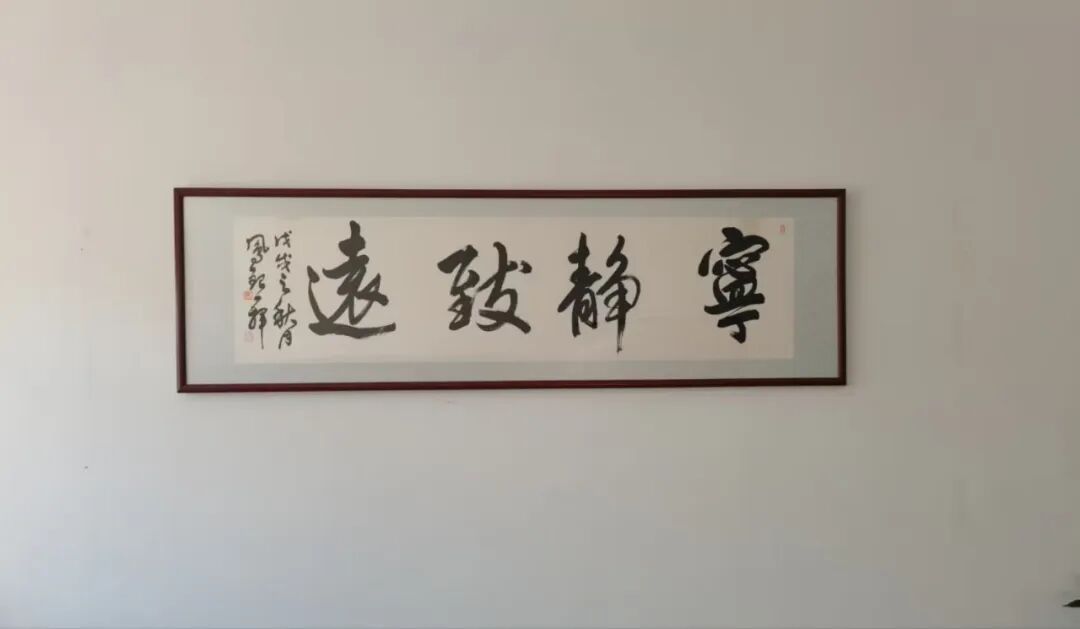 寧静致遠
戊戌之秋月
鳳